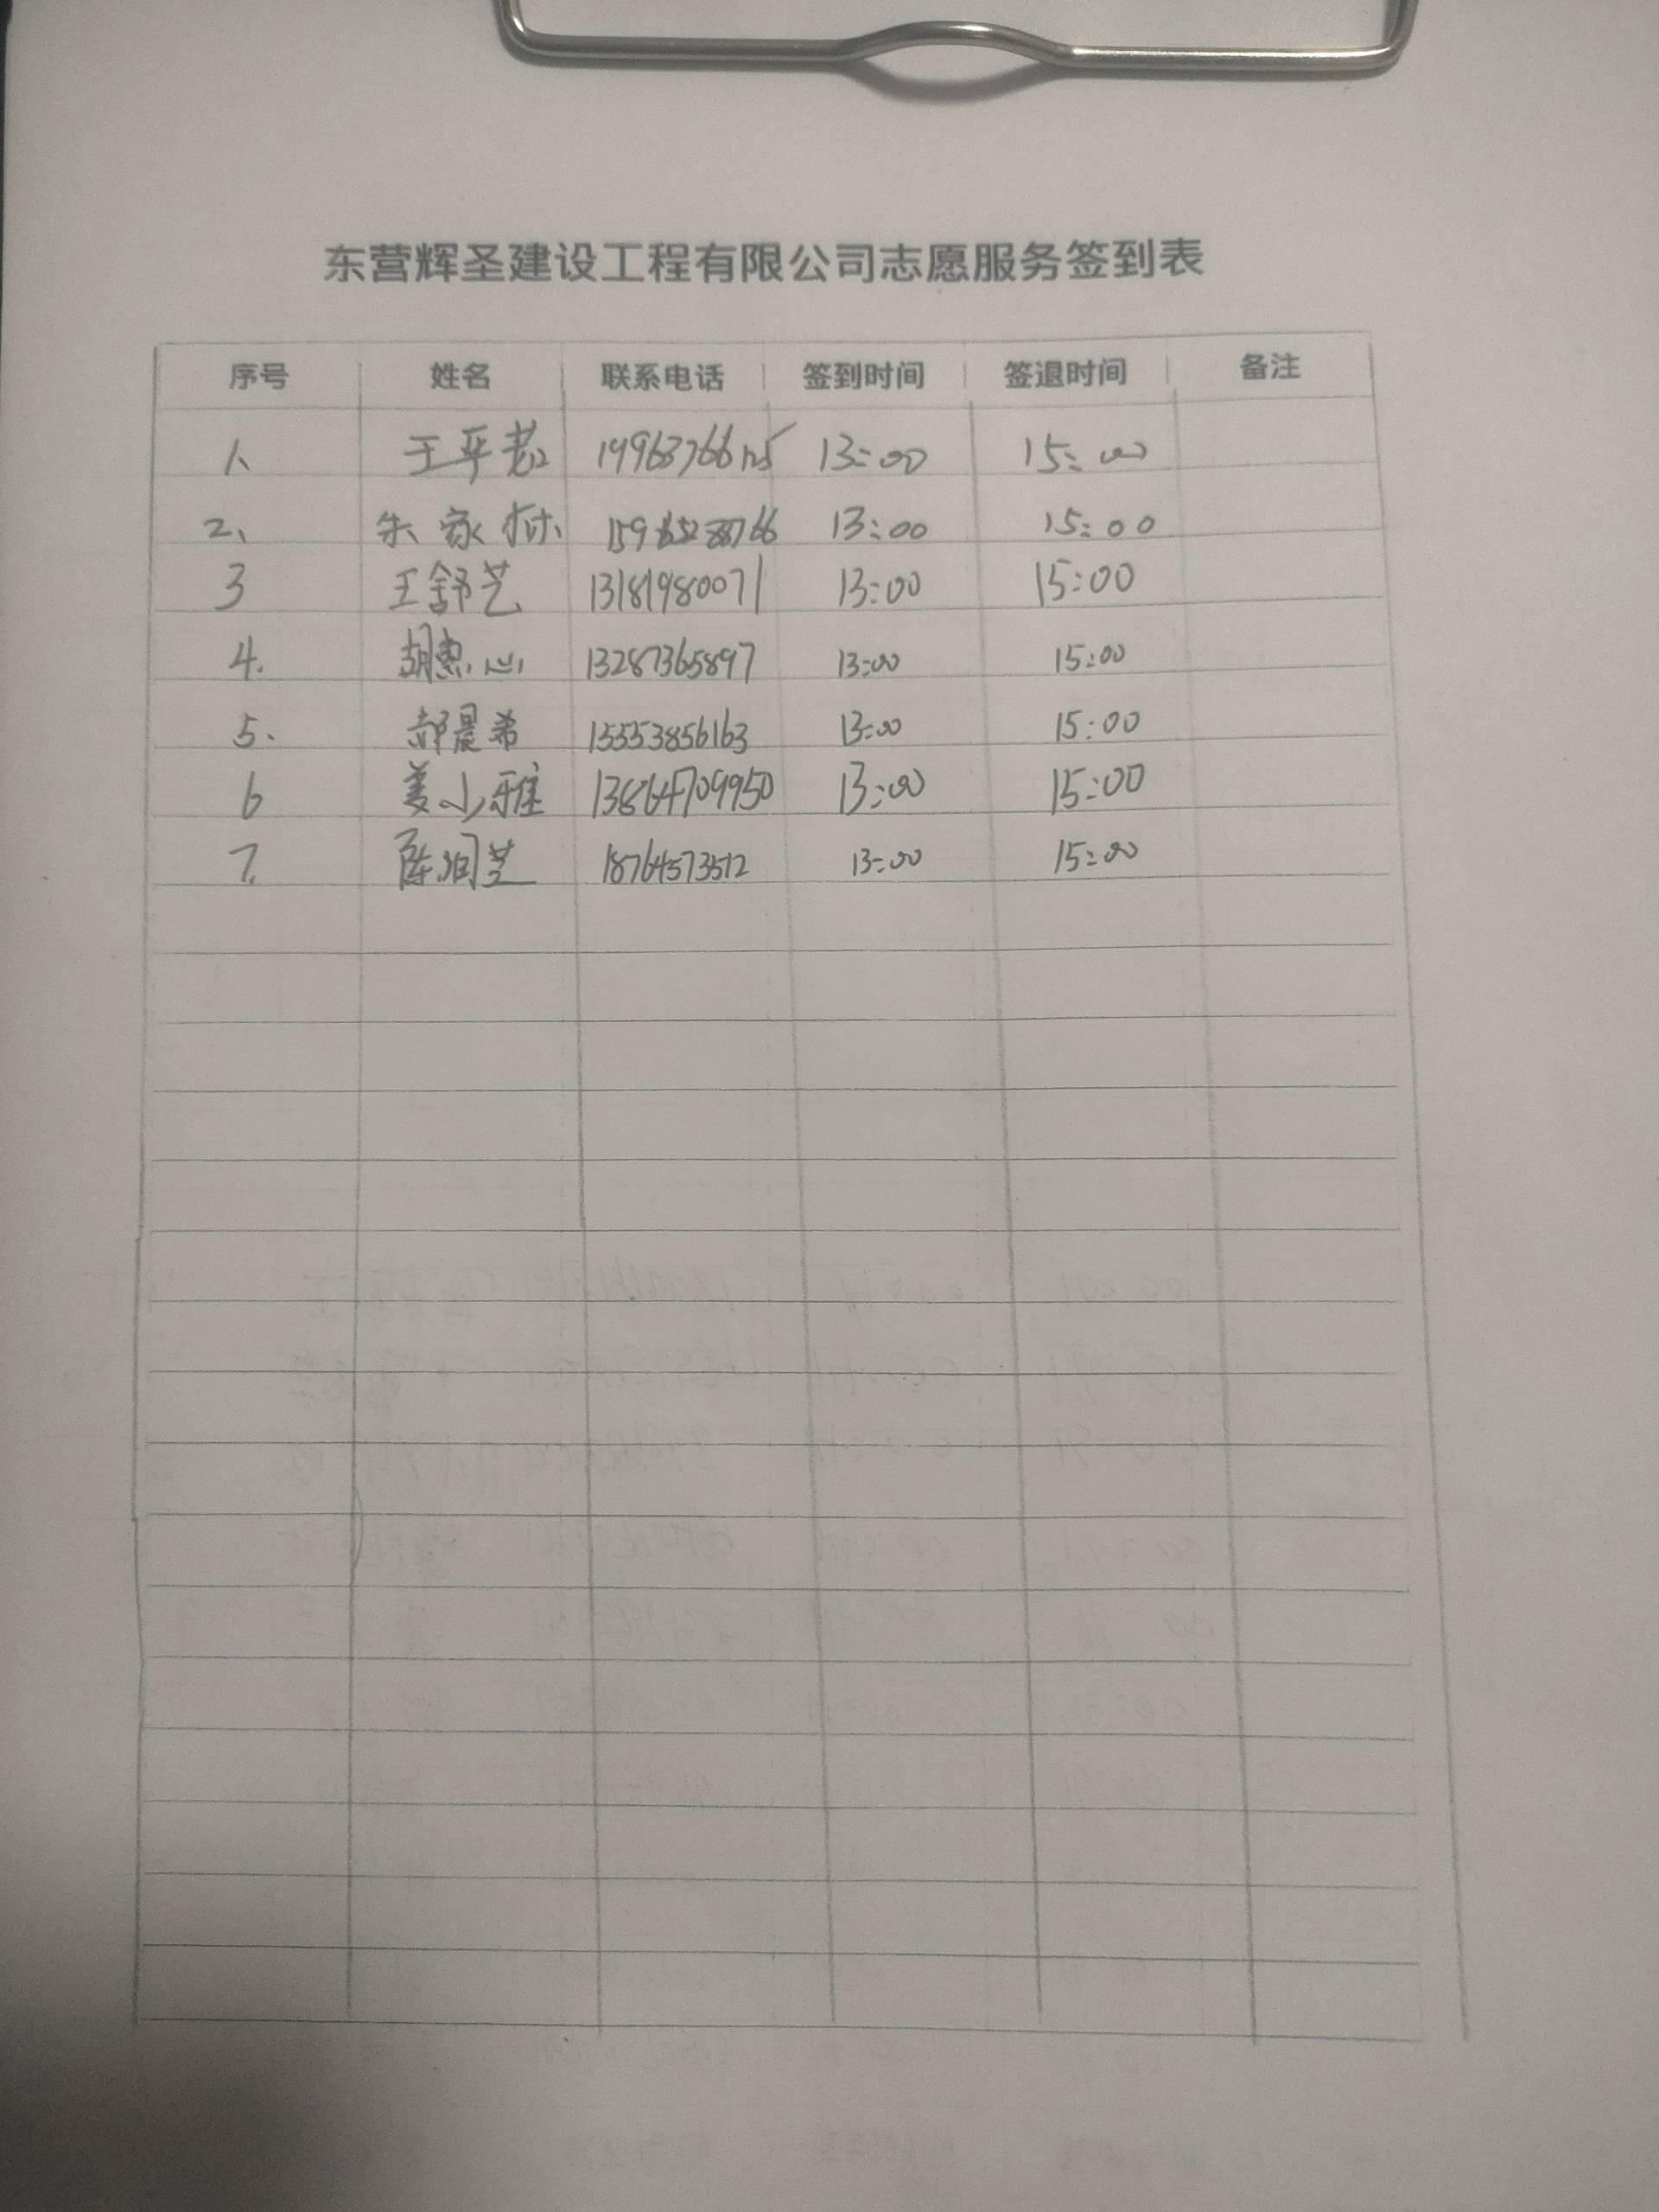 东营辉圣建设工程有限公司志愿服务签到表
序号 姓名 联系电话 签到时间 签退时间 备注
1、 王平 13:00 15:00
2、 朱家栋 13:00 15:00
3 王舒艺 13181980071 13:00 15:00
4. 胡惠心 13287365897 13:00 15:00
5. 郝晨希 15553856163 13:00 15:00
6 姜小雅 13864709950 13:00 15:00
7. 陈润芝 18764573512 13:00 15:00